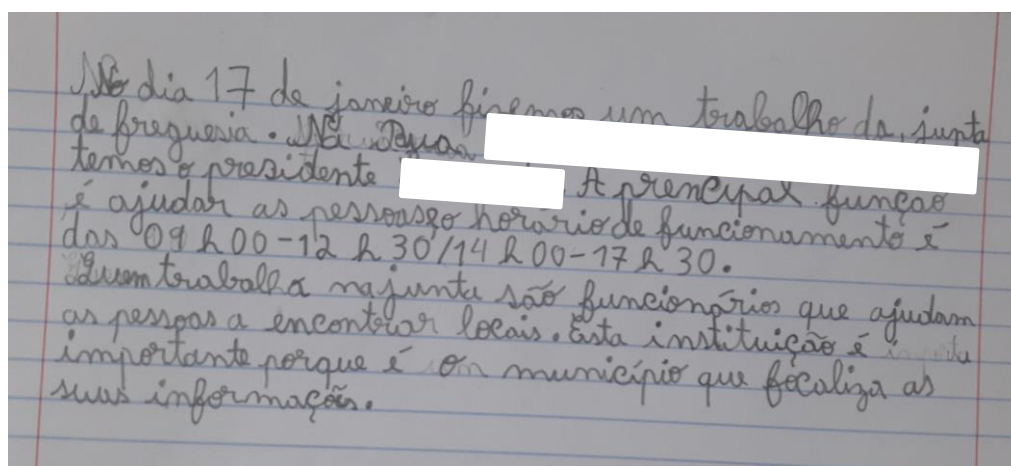 No dia 17 de janeiro fizemos um trabalho da junta
de freguesia. Na Rua
temos o presidente . A prencipal função
é ajudar as pessoas, o horário de funcionamento é
das 09 h 00-12 h 30/14 h 00-17 h 30.
Quem trabalha na junta são funcionários que ajudam
as pessoas a encontrar locais. Esta instituição é
importante porque é município que focaliza as
suas informações.